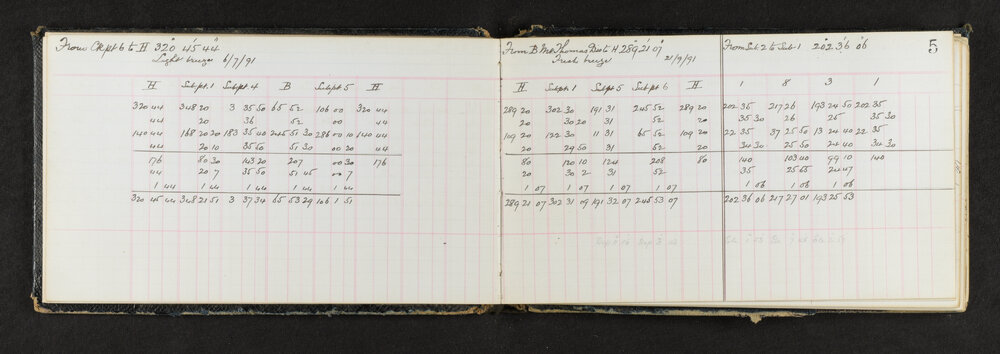 From Ckpt 6 to H 320 45 44
Light breeze 6/7/91
H Subpt. 1 Subpt. 4 B Subpt 5 H
320 44 348 20 3 35 50 65 52 106 00 320 44
44 20 36 52 00 44
140 44 168 20 20 183 35 40 245 51 30 286 00 10 140 44
44 20 10 35 50 51 30 00 20 44
176 80 30 143 20 207 00 30 176
44 20 7 35 50 51 45 00 7
1 44 1 44 1 44 1 44 1 44
320 45 44 348 21 51 3 37 34 65 53 29 106 1 51
From B Thomas to H 289 21 07
Fresh breeze 21/9/91
H Subpt. 1 Subpt 5 Subpt 6 H
289 20 302 30 191 31 245 52 289 20
20 30 20 31 52 20
109 20 122 30 11 31 65 52 109 20
20 29 50 31 52 20
80 120 10 124 208 80
20 30 2 31 52
1 07 1 07 1 07 1 07
289 21 07 302 31 09 191 32 07 245 53 07
From Sub. 2 to Sub. 1 202 36 06
5
1 8 3 1
202 35 217 26 193 24 50 202 35
35 30 26 25 35 30
22 35 37 25 50 13 24 40 22 35
34 30 25 50 24 40 34 30
140 103 40 99 10 140
35 25 55 24 47
1 06 1 06 1 06
202 36 06 217 27 01 193 25 53